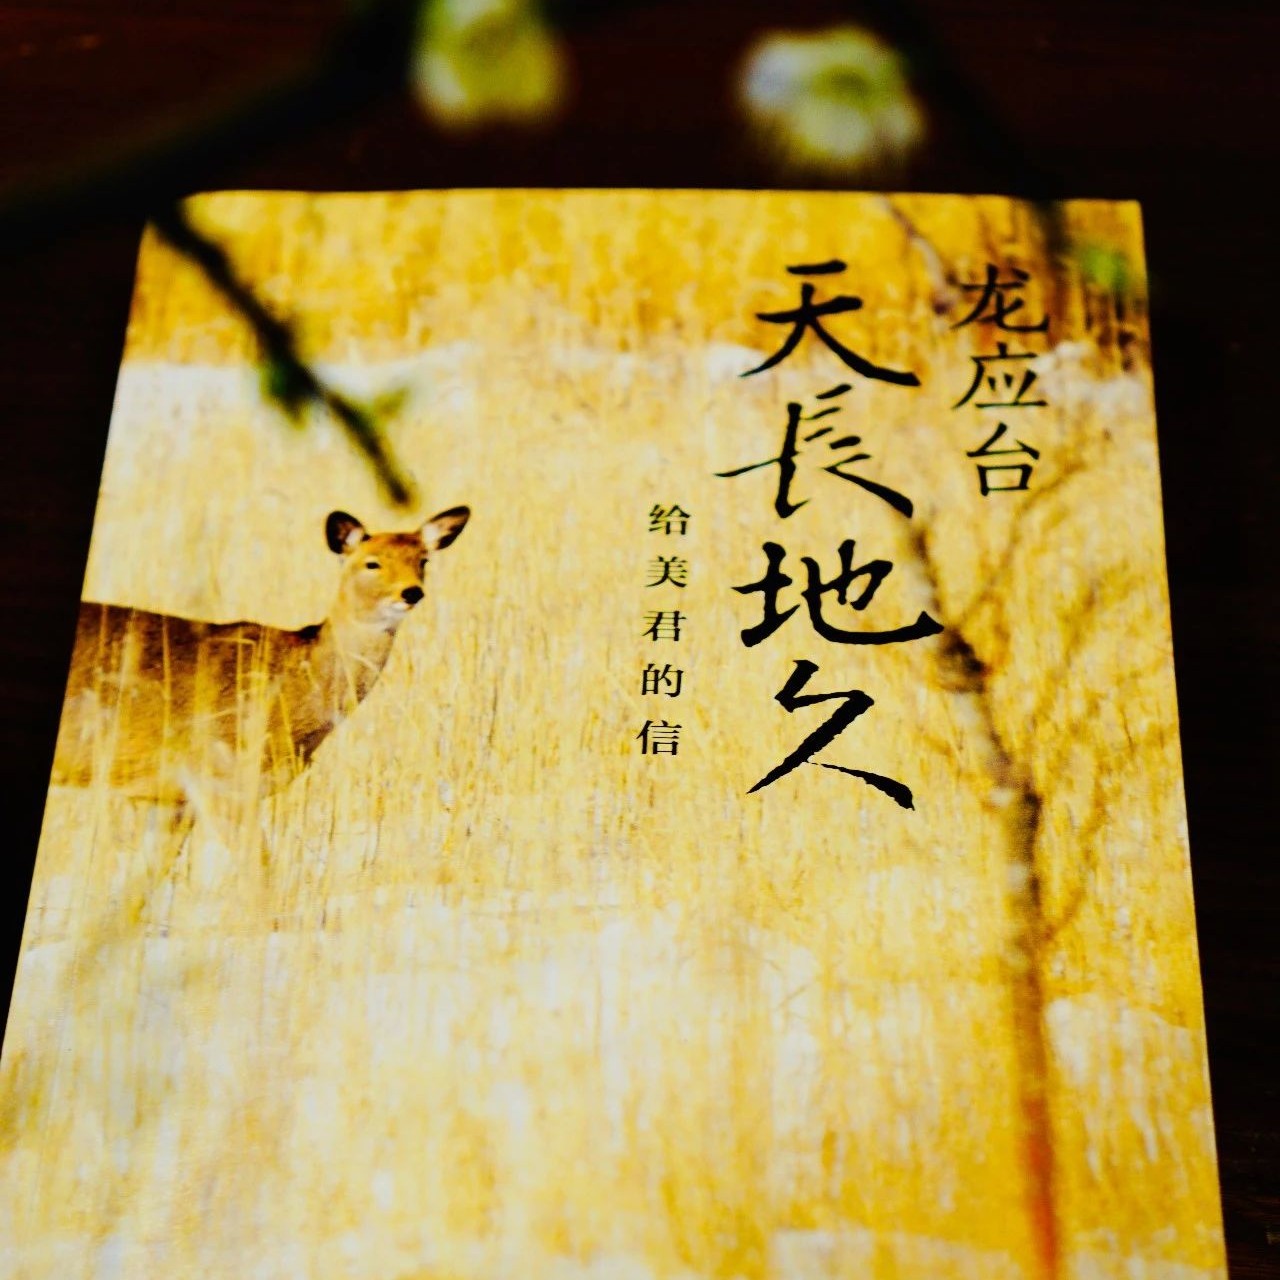 龙应台
天長地久
给美君的信